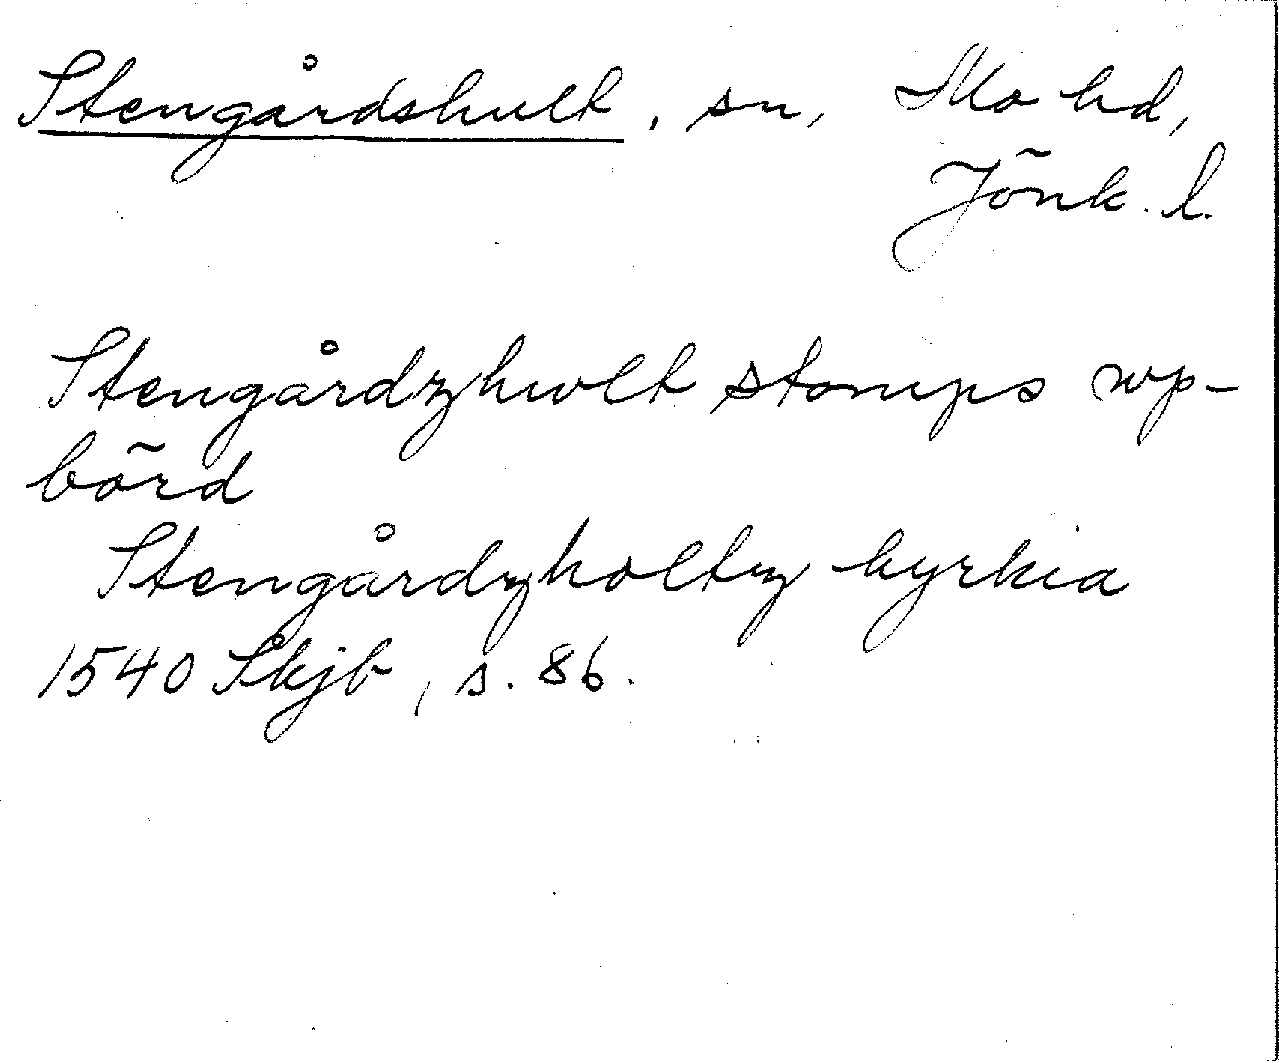 Stengårdshult, sn, Mo hd,
Jönk. l.
Stengårdzhwlt stomps wp-
börd
Stengårdzholtz kyrkia
1540 Skjb, s. 86.